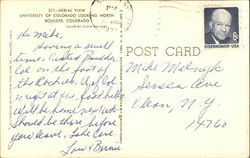 311-AERIAL VIEW
UNIVERSITY OF COLORADO LOOKING NORTH
BOULDER, COLORADO
POST CARD
EISENHOWER·USA
6c
Hi Mike,
Having a swell
time. Visited Boulder,
Col. on the foot of
the Rockies.
will be home next wk.
Should be there before
you leave. Take Care
Love Bernie
Mike
Seneca Ave
Olean, N.Y.
14760